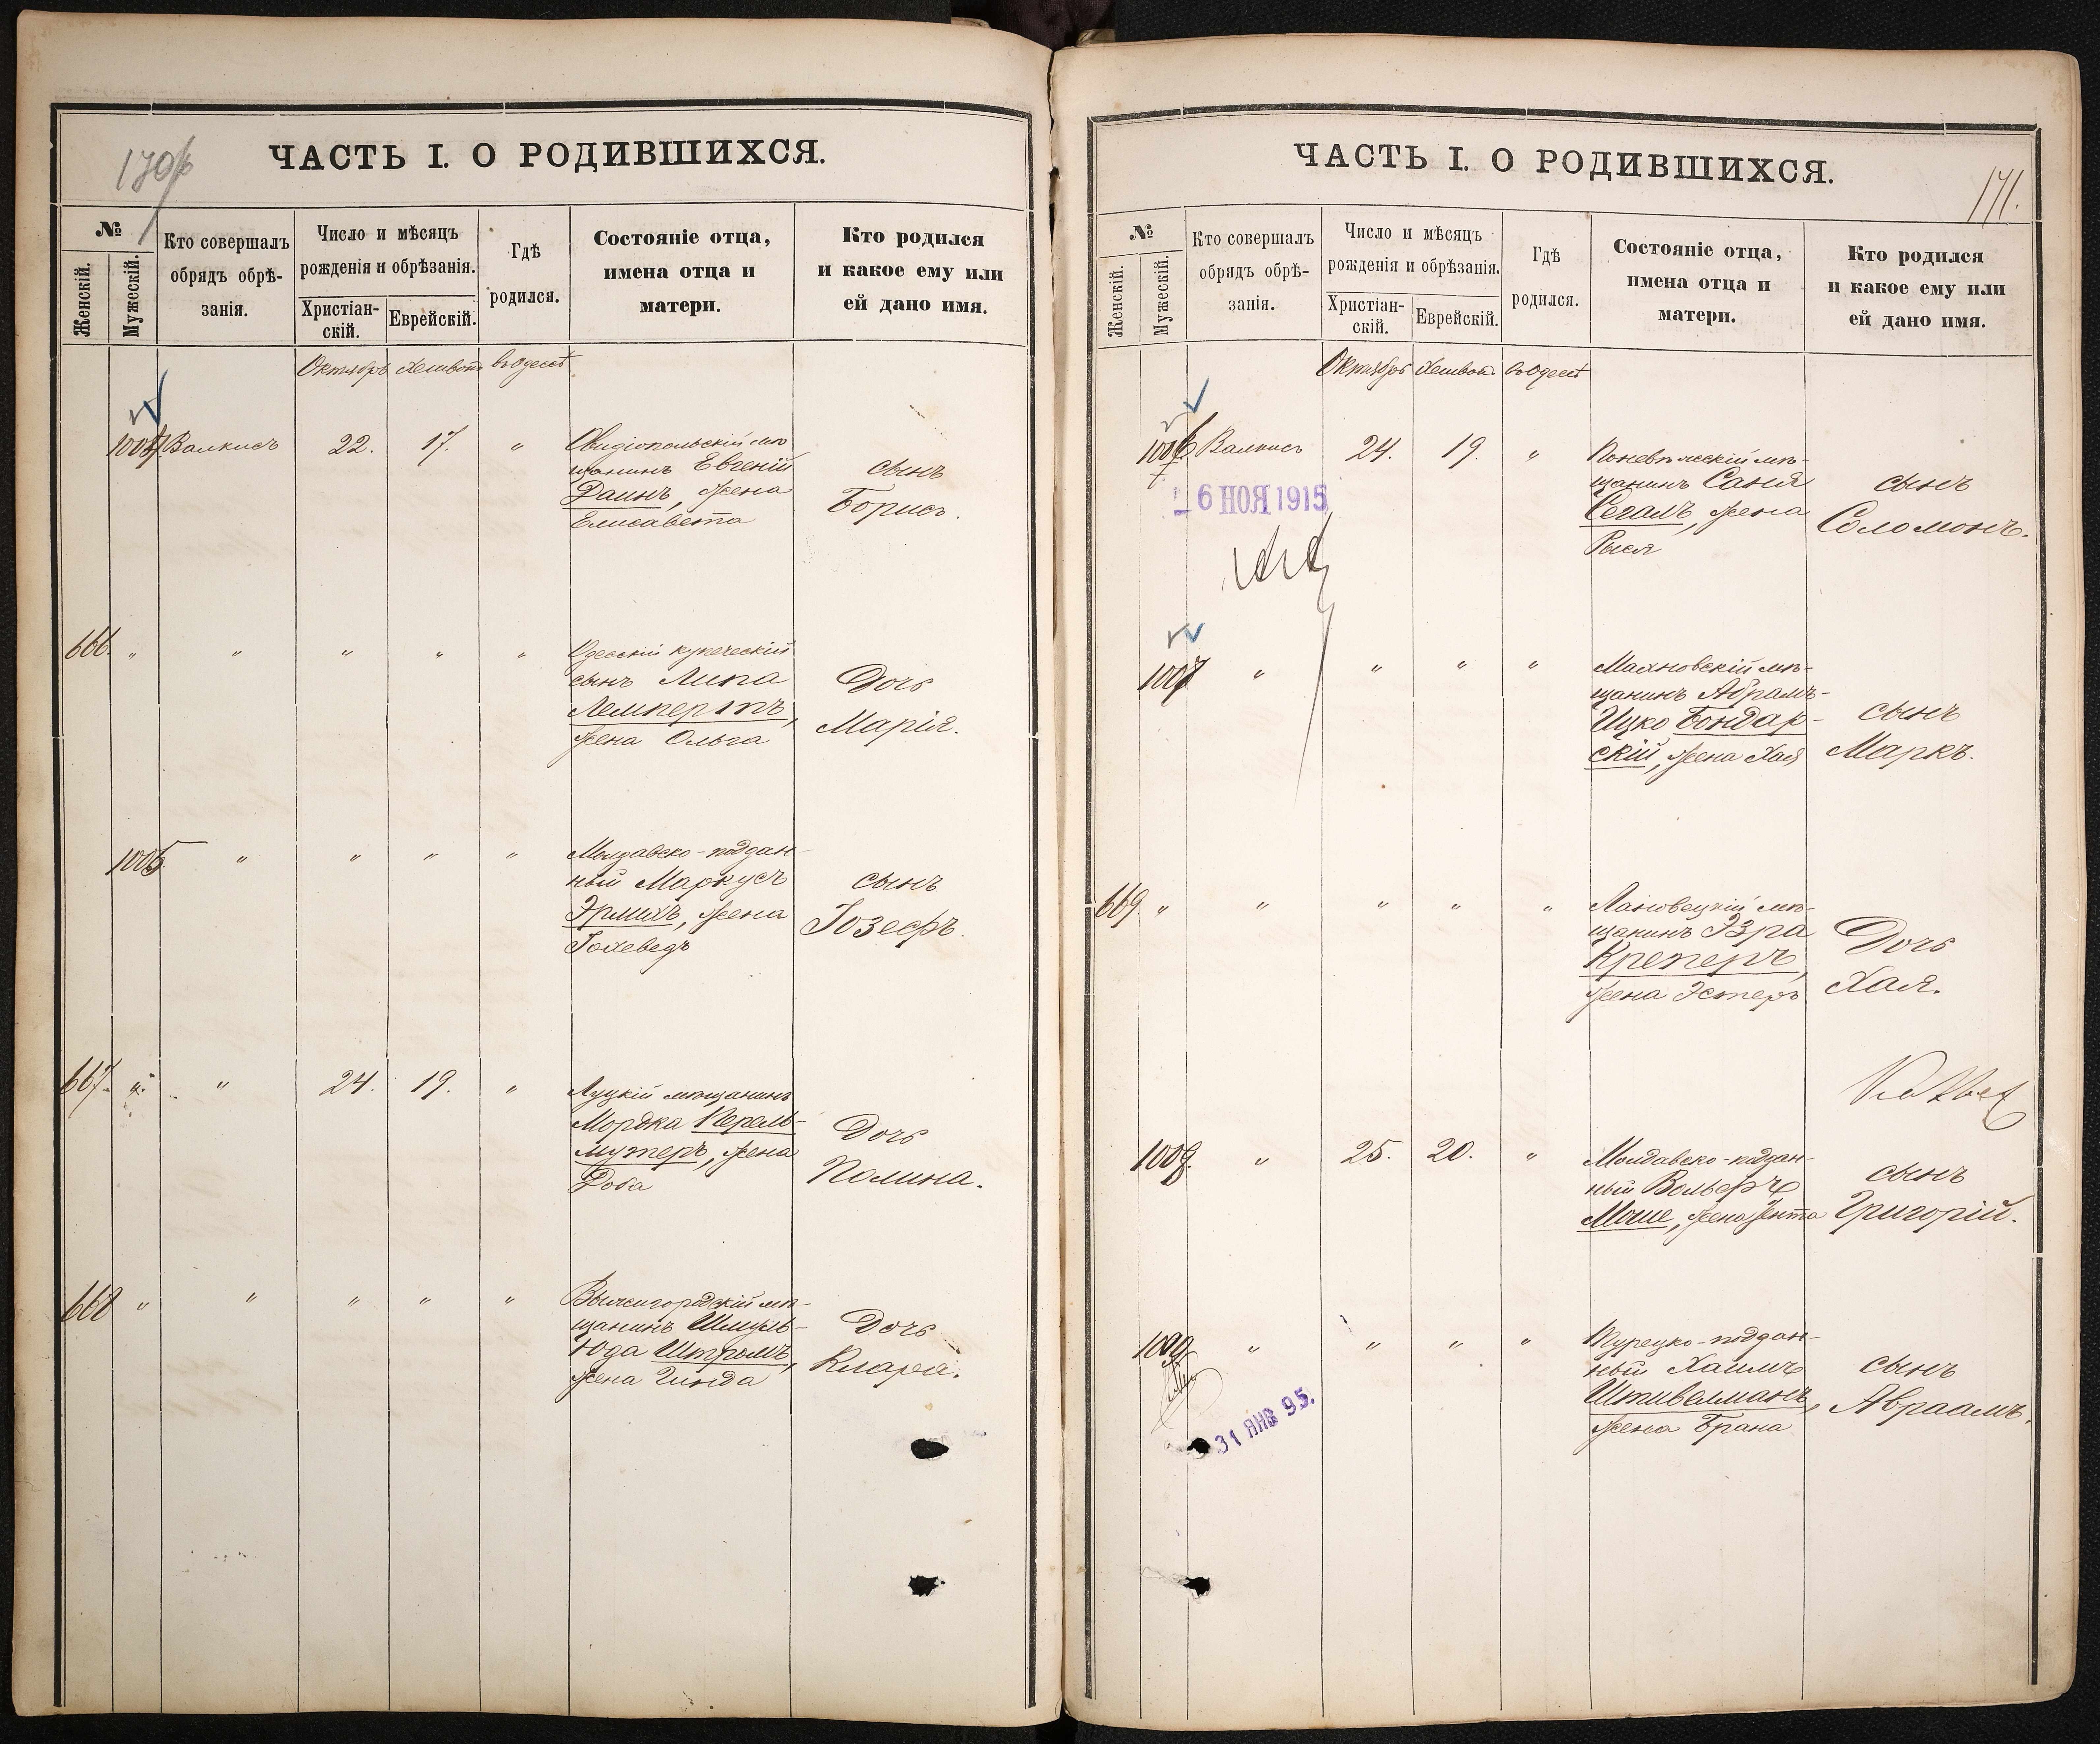 170
ЧАСТЬ I. О РОДИВШИХСЯ.
№
Женскій.
Мужескій.
Кто совершалъ
обрядъ обрѣ-
занія.
Число и мѣсяцъ
рожденія и обрѣзанія.
Христіан-
скій.
Еврейскій.
Гдѣ
родился.
Состояніе отца,
имена отца и
матери.
Кто родился
и какое ему или
ей дано имя.
Октябрь Хешвонъ въ Одессѣ
1004 Валкисъ 22. 17. "
Овидіопольскій мѣ-
щанинъ Евгеній
Даинъ, жена
Елисавета
сынъ
Борисъ.
666. " " " " "
Одесскій купеческій
сынъ Липа
Лемпертъ,
жена Ольга
Дочь
Марія.
1005 " " " "
Молдавско-поддан-
ный Маркусъ
Эрлихъ, жена
Іохеведъ
сынъ
Іозефъ.
667. " " 24. 19. "
Луцкій мѣщанинъ
Мордка Перель-
мутеръ, жена
Доба
Дочь
Полина.
668 " " " " "
щанинъ Шмуль-
Юда Штромъ,
жена Гинда
Дочь
Клара.
171.
ЧАСТЬ I. О РОДИВШИХСЯ.
№
Женскій.
Мужескій.
Кто совершалъ
обрядъ обрѣ-
занія.
Число и мѣсяцъ
рожденія и обрѣзанія.
Христіан-
скій.
Еврейскій.
Гдѣ
родился.
Состояніе отца,
имена отца и
матери.
Кто родился
и какое ему или
ей дано имя.
Октябрь Хешвонъ въ Одессѣ
1006 Валкисъ 24. 19. "
Поневѣжскій мѣ-
щанинъ Саня
Сегалъ, жена
Рыся
сынъ
Соломонъ.
6 НОЯ 1915
1007 " " " "
Махновскій мѣ-
щанинъ Абрамъ-
Ицко Бондар-
скій, жена Хая
сынъ
Маркъ.
669. " " " " "
Лановецкій мѣ-
щанинъ Эзра
Креперъ,
жена Эстеръ
Дочь
Хая.
1008. " 25. 20. "
Молдавско-поддан-
ный Вольфъ
Моше, жена Ента
сынъ
Григорій.
1009 " " " "
Турецко-поддан-
ный Хаимъ
Штивелманъ,
жена Брана
сынъ
Авраамъ.
31 ЯНВ 95.